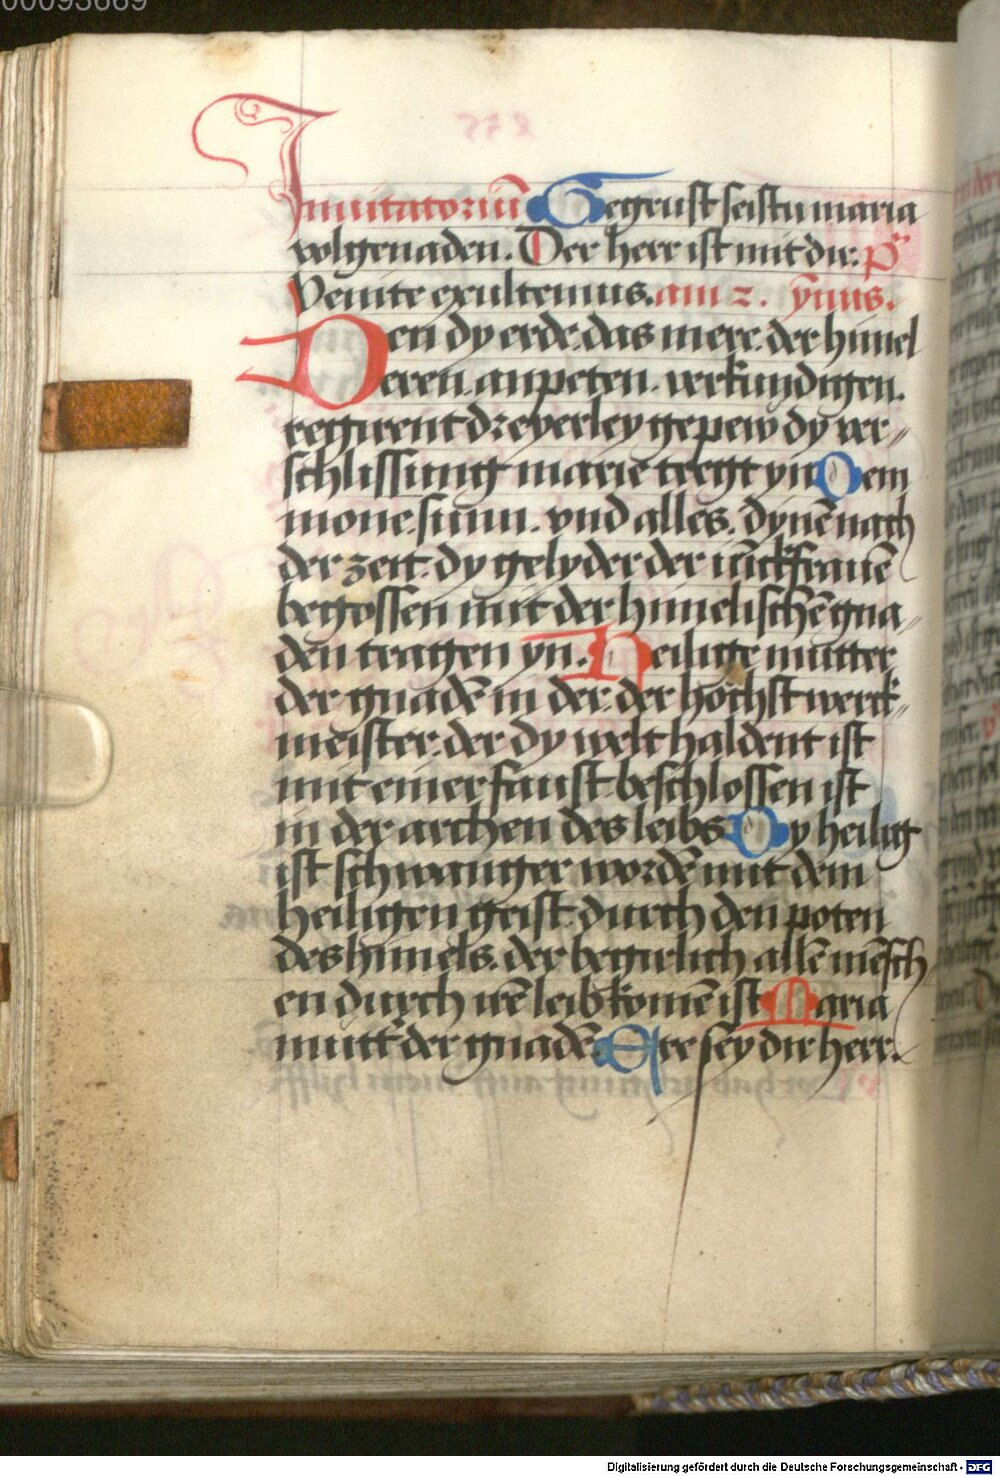 00093669
Inuitatoriū Gegrust seistu maria
volgenaden. Der herr ist mit dir. p̄s
Venite exultemus. am 2. ymus.
Den dy erde. das mere. der himel
eren. anpeten. verkundigen.
regirent dreyerley gepew dy ver-
schlissung marie tregt yn Dem
mone. sunn. vnd alles. dynē nach
der zeit. dy gelyder der iūckfrauē
begossen mit der himelischē gna-
den tragen yn. Heilige mutter
der gnadē in der. der hochst werck-
meister. der dy welt haldent ist
mit einer faust. beschlossen ist
in der archen des leibs Dy heilig
ist schwanger wordē mit dem
heiligen geist. durch den poten
des himels. der begirlich allē mēsch
en durch irē leib komē ist Maria
mutt̄ der gnadē. Ere sey dir herr.
Digitalisierung gefördert durch die Deutsche Forschungsgemeinschaft - DFG